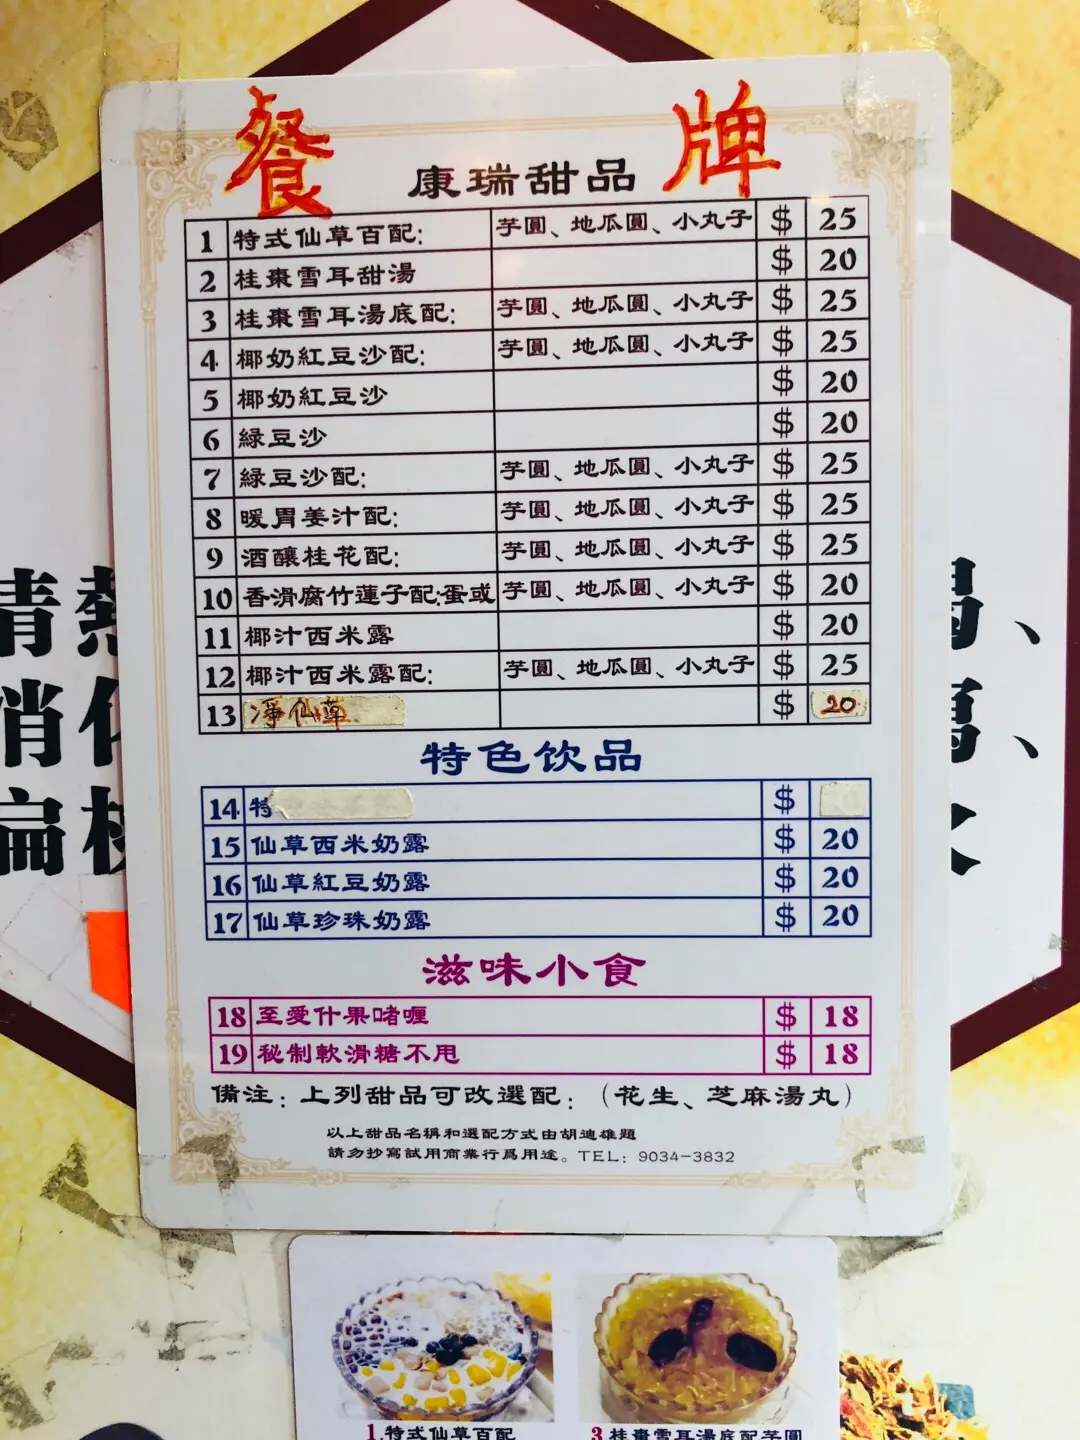 餐牌
康瑞甜品
1 特式仙草百配: 芋圓、地瓜圓、小丸子 $ 25
2 桂棗雪耳甜湯 $ 20
3 桂棗雪耳湯底配: 芋圓、地瓜圓、小丸子 $ 25
4 椰奶紅豆沙配: 芋圓、地瓜圓、小丸子 $ 25
5 椰奶紅豆沙 $ 20
6 綠豆沙 $ 20
7 綠豆沙配: 芋圓、地瓜圓、小丸子 $ 25
8 暖胃姜汁配: 芋圓、地瓜圓、小丸子 $ 25
9 酒釀桂花配: 芋圓、地瓜圓、小丸子 $ 25
10 香滑腐竹蓮子配:蛋或 芋圓、地瓜圓、小丸子 $ 20
11 椰汁西米露 $ 20
12 椰汁西米露配: 芋圓、地瓜圓、小丸子 $ 25
13 凈仙草 $ 20
特色饮品
14 特 $
15 仙草西米奶露 $ 20
16 仙草紅豆奶露 $ 20
17 仙草珍珠奶露 $ 20
滋味小食
18 至愛什果啫喱 $ 18
19 秘制軟滑糖不甩 $ 18
備注: 上列甜品可改選配: (花生、芝麻湯丸)
以上甜品名稱和選配方式由胡迪雄題
請勿抄寫試用商業行爲用途。TEL: 9034-3832
清熱
消
扁
1.特式仙草百配
3 桂棗雪耳湯底配芋圓